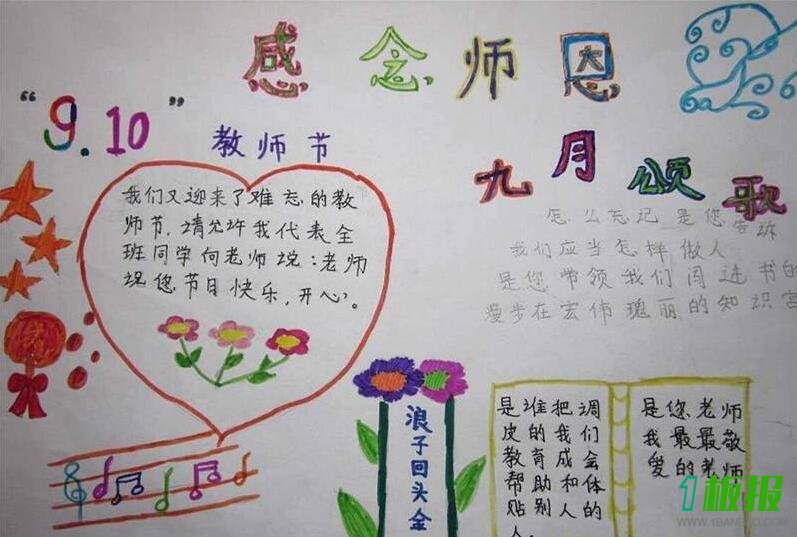 感念师恩
“9.10”
教师节
九月颂歌
我们又迎来了难忘的教
师节，请允许我代表全
班同学向老师说：老师
祝您节日快乐，开心。
怎么忘记是您告诉
我们应当怎样做人
是您带领我们闯进书的
漫步在宏伟瑰丽的知识宫
浪子回头金
是谁把调
皮的我们
教育成会
帮助和体
贴别人的
人
是您老师
我最最敬
爱的老师
1板报
WWW.1BANBAO.COM